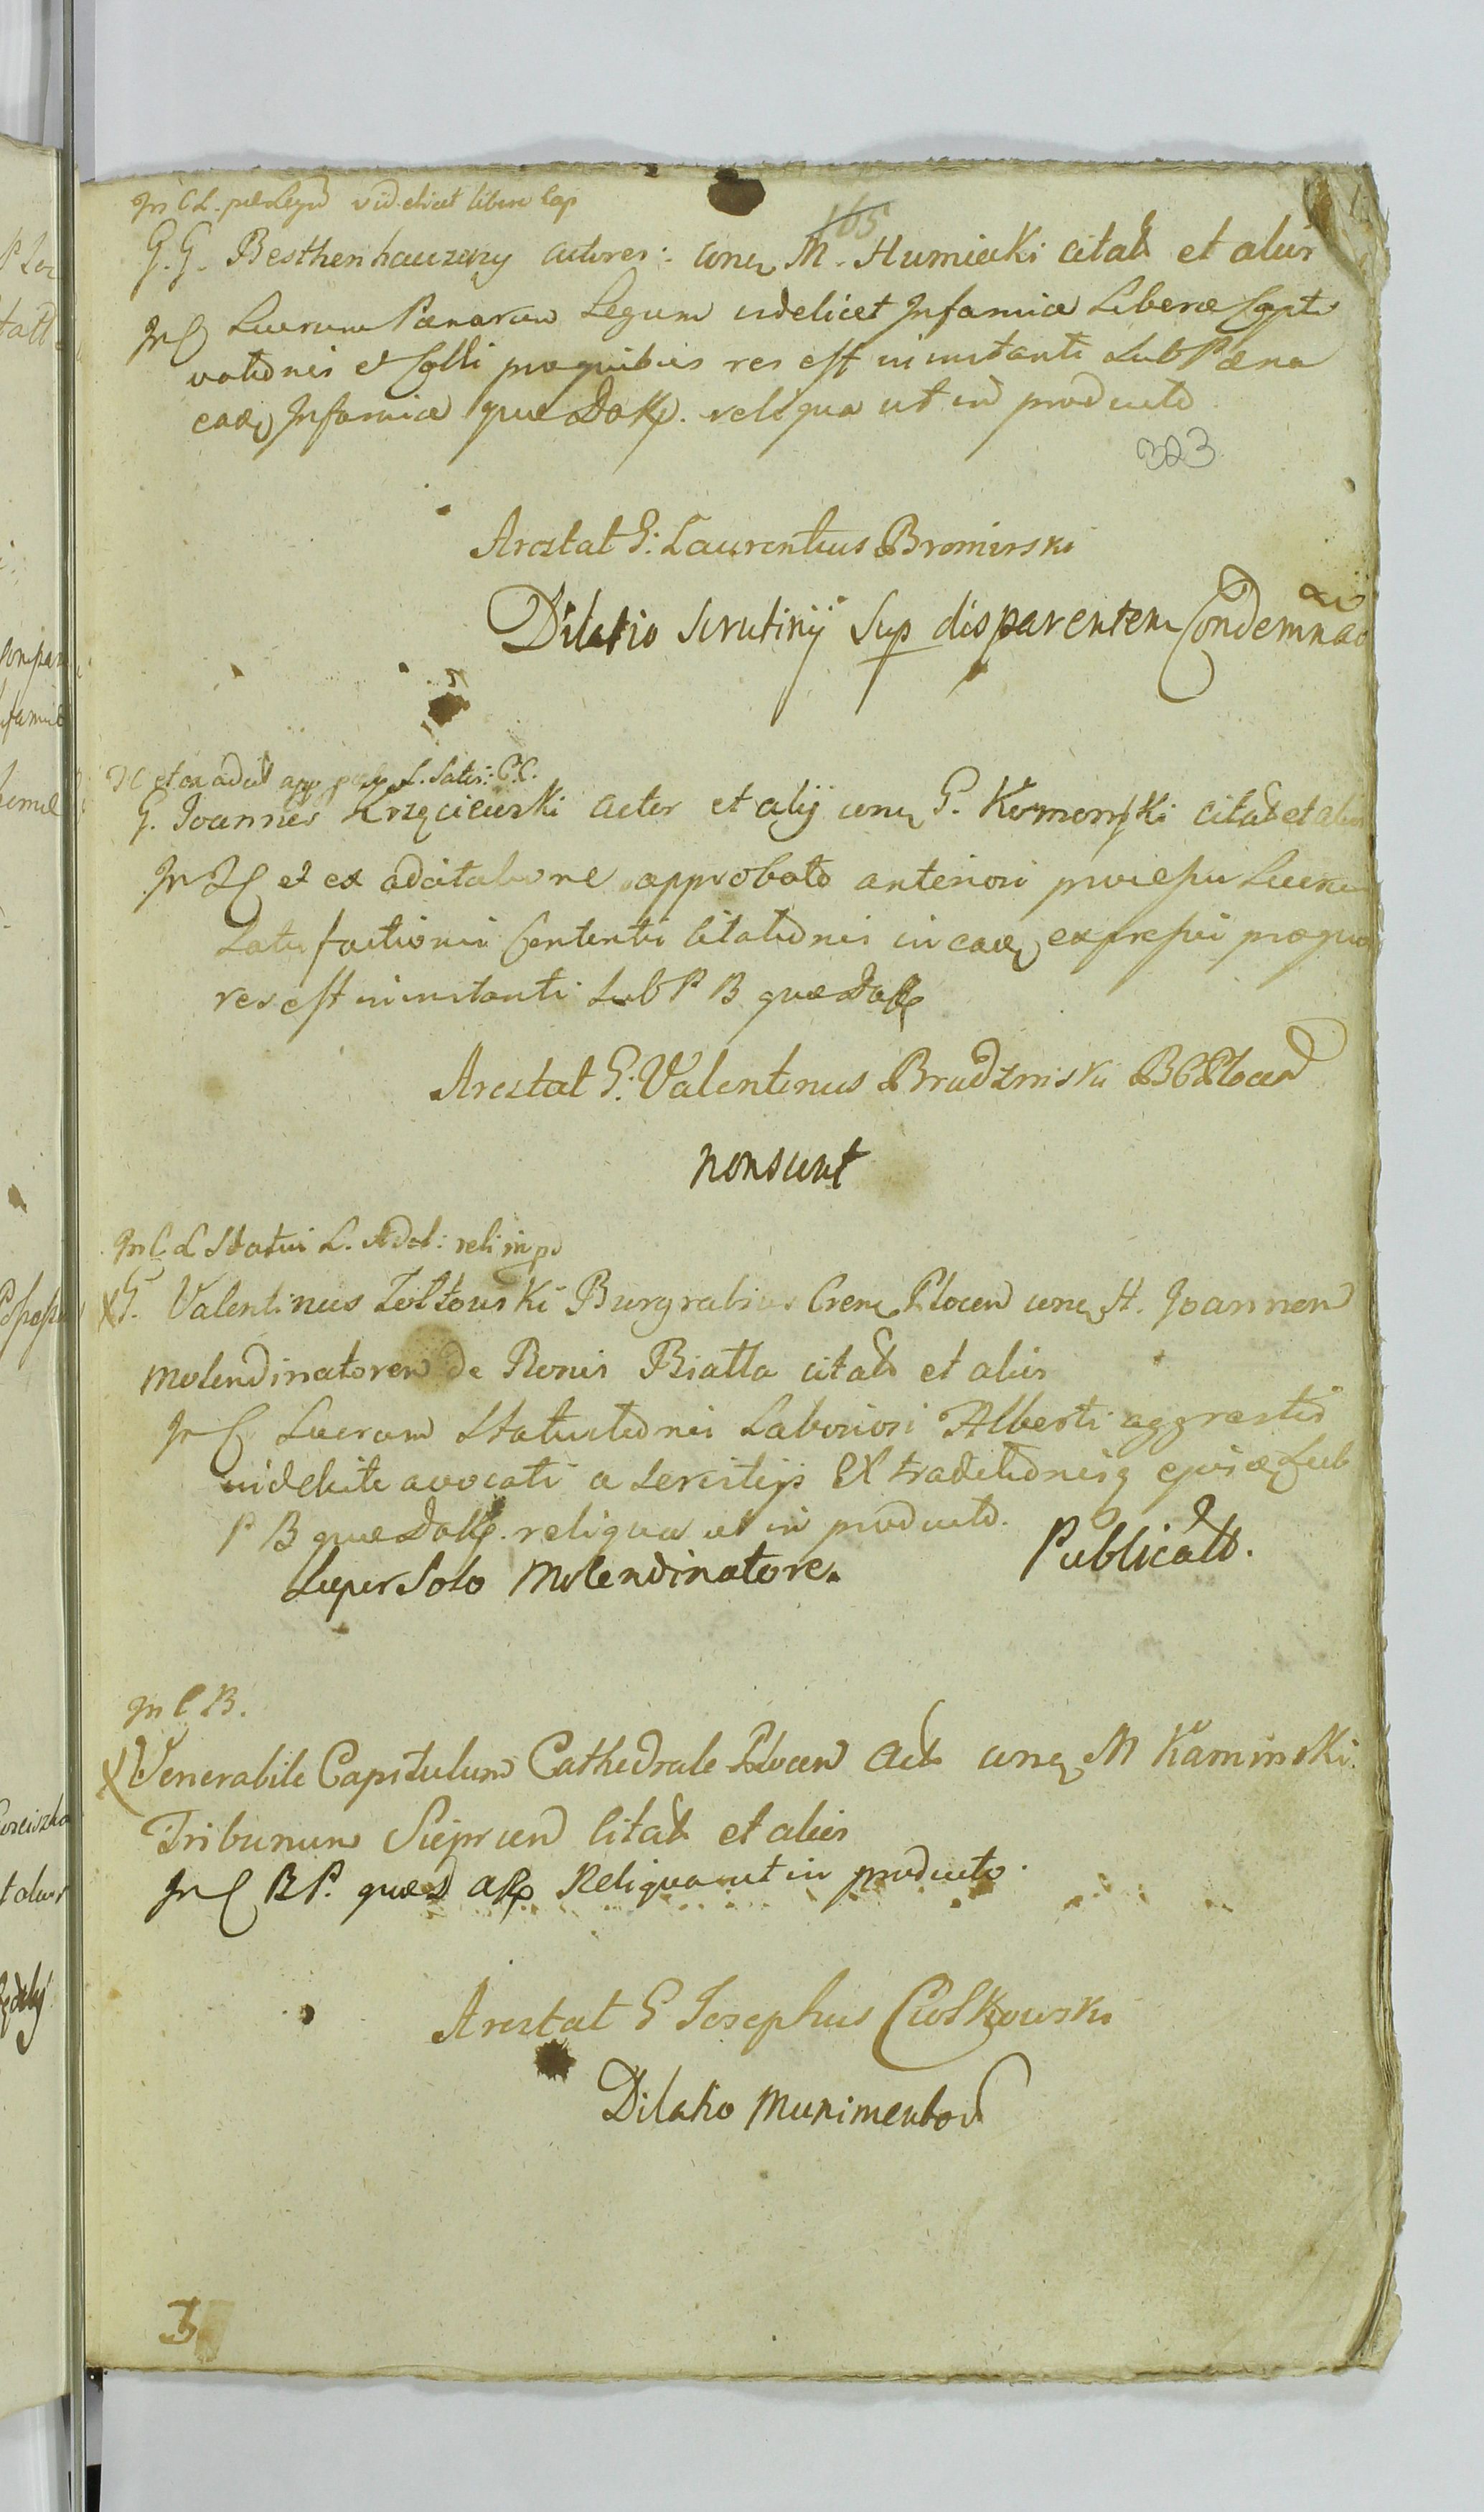 In C L. pœ Legū videlicet libere Cap
165
G. G. Besthenhauzowy Actores: conq M. Humiecki citat et alios
In C Lucrum Pœnarum Legum videlicet Infamiæ Liberæ Capti
vationis et Colli pro quibus res est in instanti Sub Pœna
eadq Infamiæ quæ Dakp. reliqua ut in producto
323
Arestat G: Laurentius Bromirski
Dilatio Scrutinij Sup disparentem Condemnao
et ex adcit app L. Satis: C.C.
G. Joannes Krzęciewski Actor et alij conq G. Komorowski citat et alios
In et ex adcitatione approbato anteriori processu Lucrum
Satisfactionis Contentis Citationis in eadq expressis pro quo
res est in instanti Sub P B quæ Dakp
Arestat G: Valentinus Brudzinski B C Plocen
non sunt
In C L Statui L. Adal: reli in pd
X G. Valentinus Zołtowski Burgrabius Cren Plocen conq H. Joannen
Molendinatorem de Bonis Biatta citat et alios
In C Lucrum Statuitionis Laboriosi Alberti aggrestis
indebite avocati a servitijs Extraditionisq ejus Sub
P B quæ Dakp. reliqua ut in producto.
Super Solo Molendinatore. Publicatt.
In C B.
X Venerabile Capitulum Cathedrale Plocen Act conq M Kaminski
Tribunum Sieprcen Citat et alios
In C B P. quæ D akp Reliqua ut in producto.
Arestat G Josephus Ciołkowski
Dilatio Munimentor